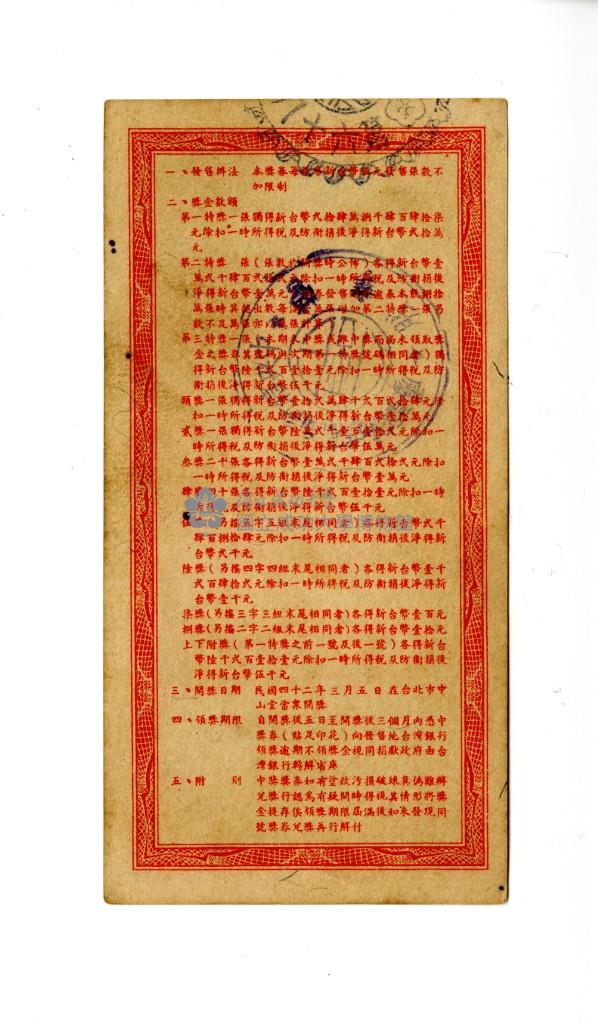 十六第
一、發售辦法　本獎券每張售新台幣　元發售張數不
加限制
二、獎金數額
第一特獎一張獨得新台幣弍拾肆萬捌千肆百肆拾柒
元除扣一時所得稅及防衛捐後淨得新台幣弍拾萬
元
第二特獎　張（張數於開獎時公佈）各得新台幣壹
萬弍千肆百弍　除扣一時所得稅及防衛捐後
淨得新台幣壹萬元　發售　逾基本數捌拾
萬張時其超出數每滿　萬張增加第二特獎一張另
數不及　萬張亦以　張計算
第三特獎一張（本期未中獎或雖中獎而尚未領取獎
金之獎券其號碼與次期第一特獎號碼相同者）獨
得新台幣陸千弍百壹拾壹元除扣一時所得稅及防
衛捐後淨得新台幣伍千元
頭獎一張獨得新台幣壹拾弍萬肆千弍百弍拾肆元除
扣一時所得稅及防衛捐後淨得新台幣壹拾萬元
貳獎一張獨得新台幣陸萬弍千壹百壹拾弍元除扣一
時所得稅及防衛捐後淨得新台幣伍萬元
叁獎二十張各得新台幣壹萬弍千肆百弍拾弍元除扣
一時所得稅及防衛捐後淨得新台幣壹萬元
肆獎四十張各得新台幣陸千弍百壹拾壹元除扣一時
所得稅及防衛捐後淨得新台幣伍千元
伍獎（另搖五字五組末尾相同者）各得新台幣弍千
肆百捌拾肆元除扣一時所得稅及防衛捐後淨得新
台幣弍千元
陸獎（另搖四字四組末尾相同者）各得新台幣壹千
弍百肆拾弍元除扣一時所得稅及防衛捐後淨得新
台幣壹千元
柒獎（另搖三字三組末尾相同者）各得新台幣壹百元
捌獎（另搖二字二組末尾相同者）各得新台幣壹拾元
上下附獎（第一特獎之前一號及後一號）各得新台
幣陸千弍百壹拾壹元除扣一時所得稅及防衛捐後
淨得新台幣伍千元
三、開獎日期　民國四十二年三月五日在台北市中
山堂當衆開獎
四、領獎期限　自開獎後五日至開獎後三個月內憑中
獎券（貼足印花）向發售地台灣銀行
領獎逾期不領獎金視同捐獻政府由台
灣銀行轉解省庫
五、附　　則　中獎獎券如有塗改污損破爛真偽難辨
兌獎行認為有疑問時得視其情形將獎
金提存俟領獎期限屆滿後如未發現同
號獎券兌獎再行解付
國立成功大學博物館